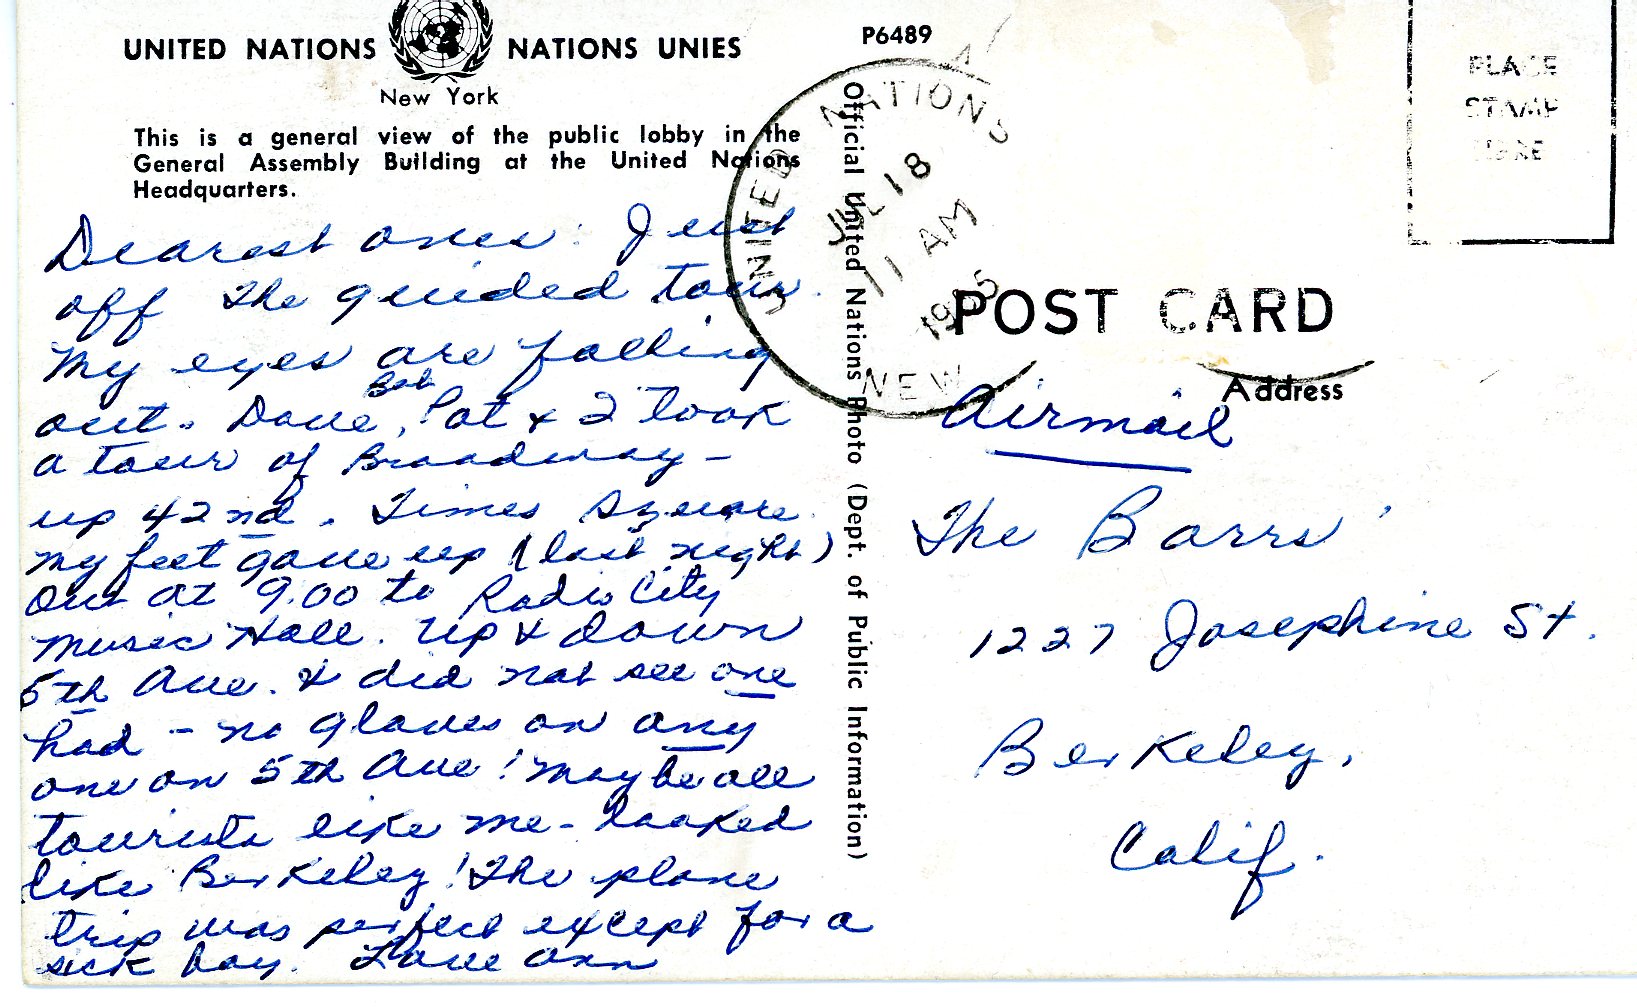 UNITED NATIONS NATIONS UNIES
New York
This is a general view of the public lobby in the
General Assembly Building at the United Nations
Headquarters.
P6489
Dearest ones: Just
off the guided tour.
My eyes are falling
out. Dave, Bob, Pat & I took
a tour of Broadway -
up 42nd. Times Square
my feet gave up (last night)
Out at 9.00 to Radio City
Music Hall. Up & down
5th Ave. & did not see one
had - no gloves on any
one on 5th Ave! Maybe all
tourists like me - looked
like Berkeley! The plane
trip was perfect except for a
sick boy. Love Ann
Official United Nations Photo (Dept. of Public Information)
UNITED NATIONS
JUL 18
11 AM
1965
NEW
PLACE
STAMP
HERE
POST CARD
Address
Airmail
The Barrs'
1227 Josephine St.
Berkeley,
Calif.